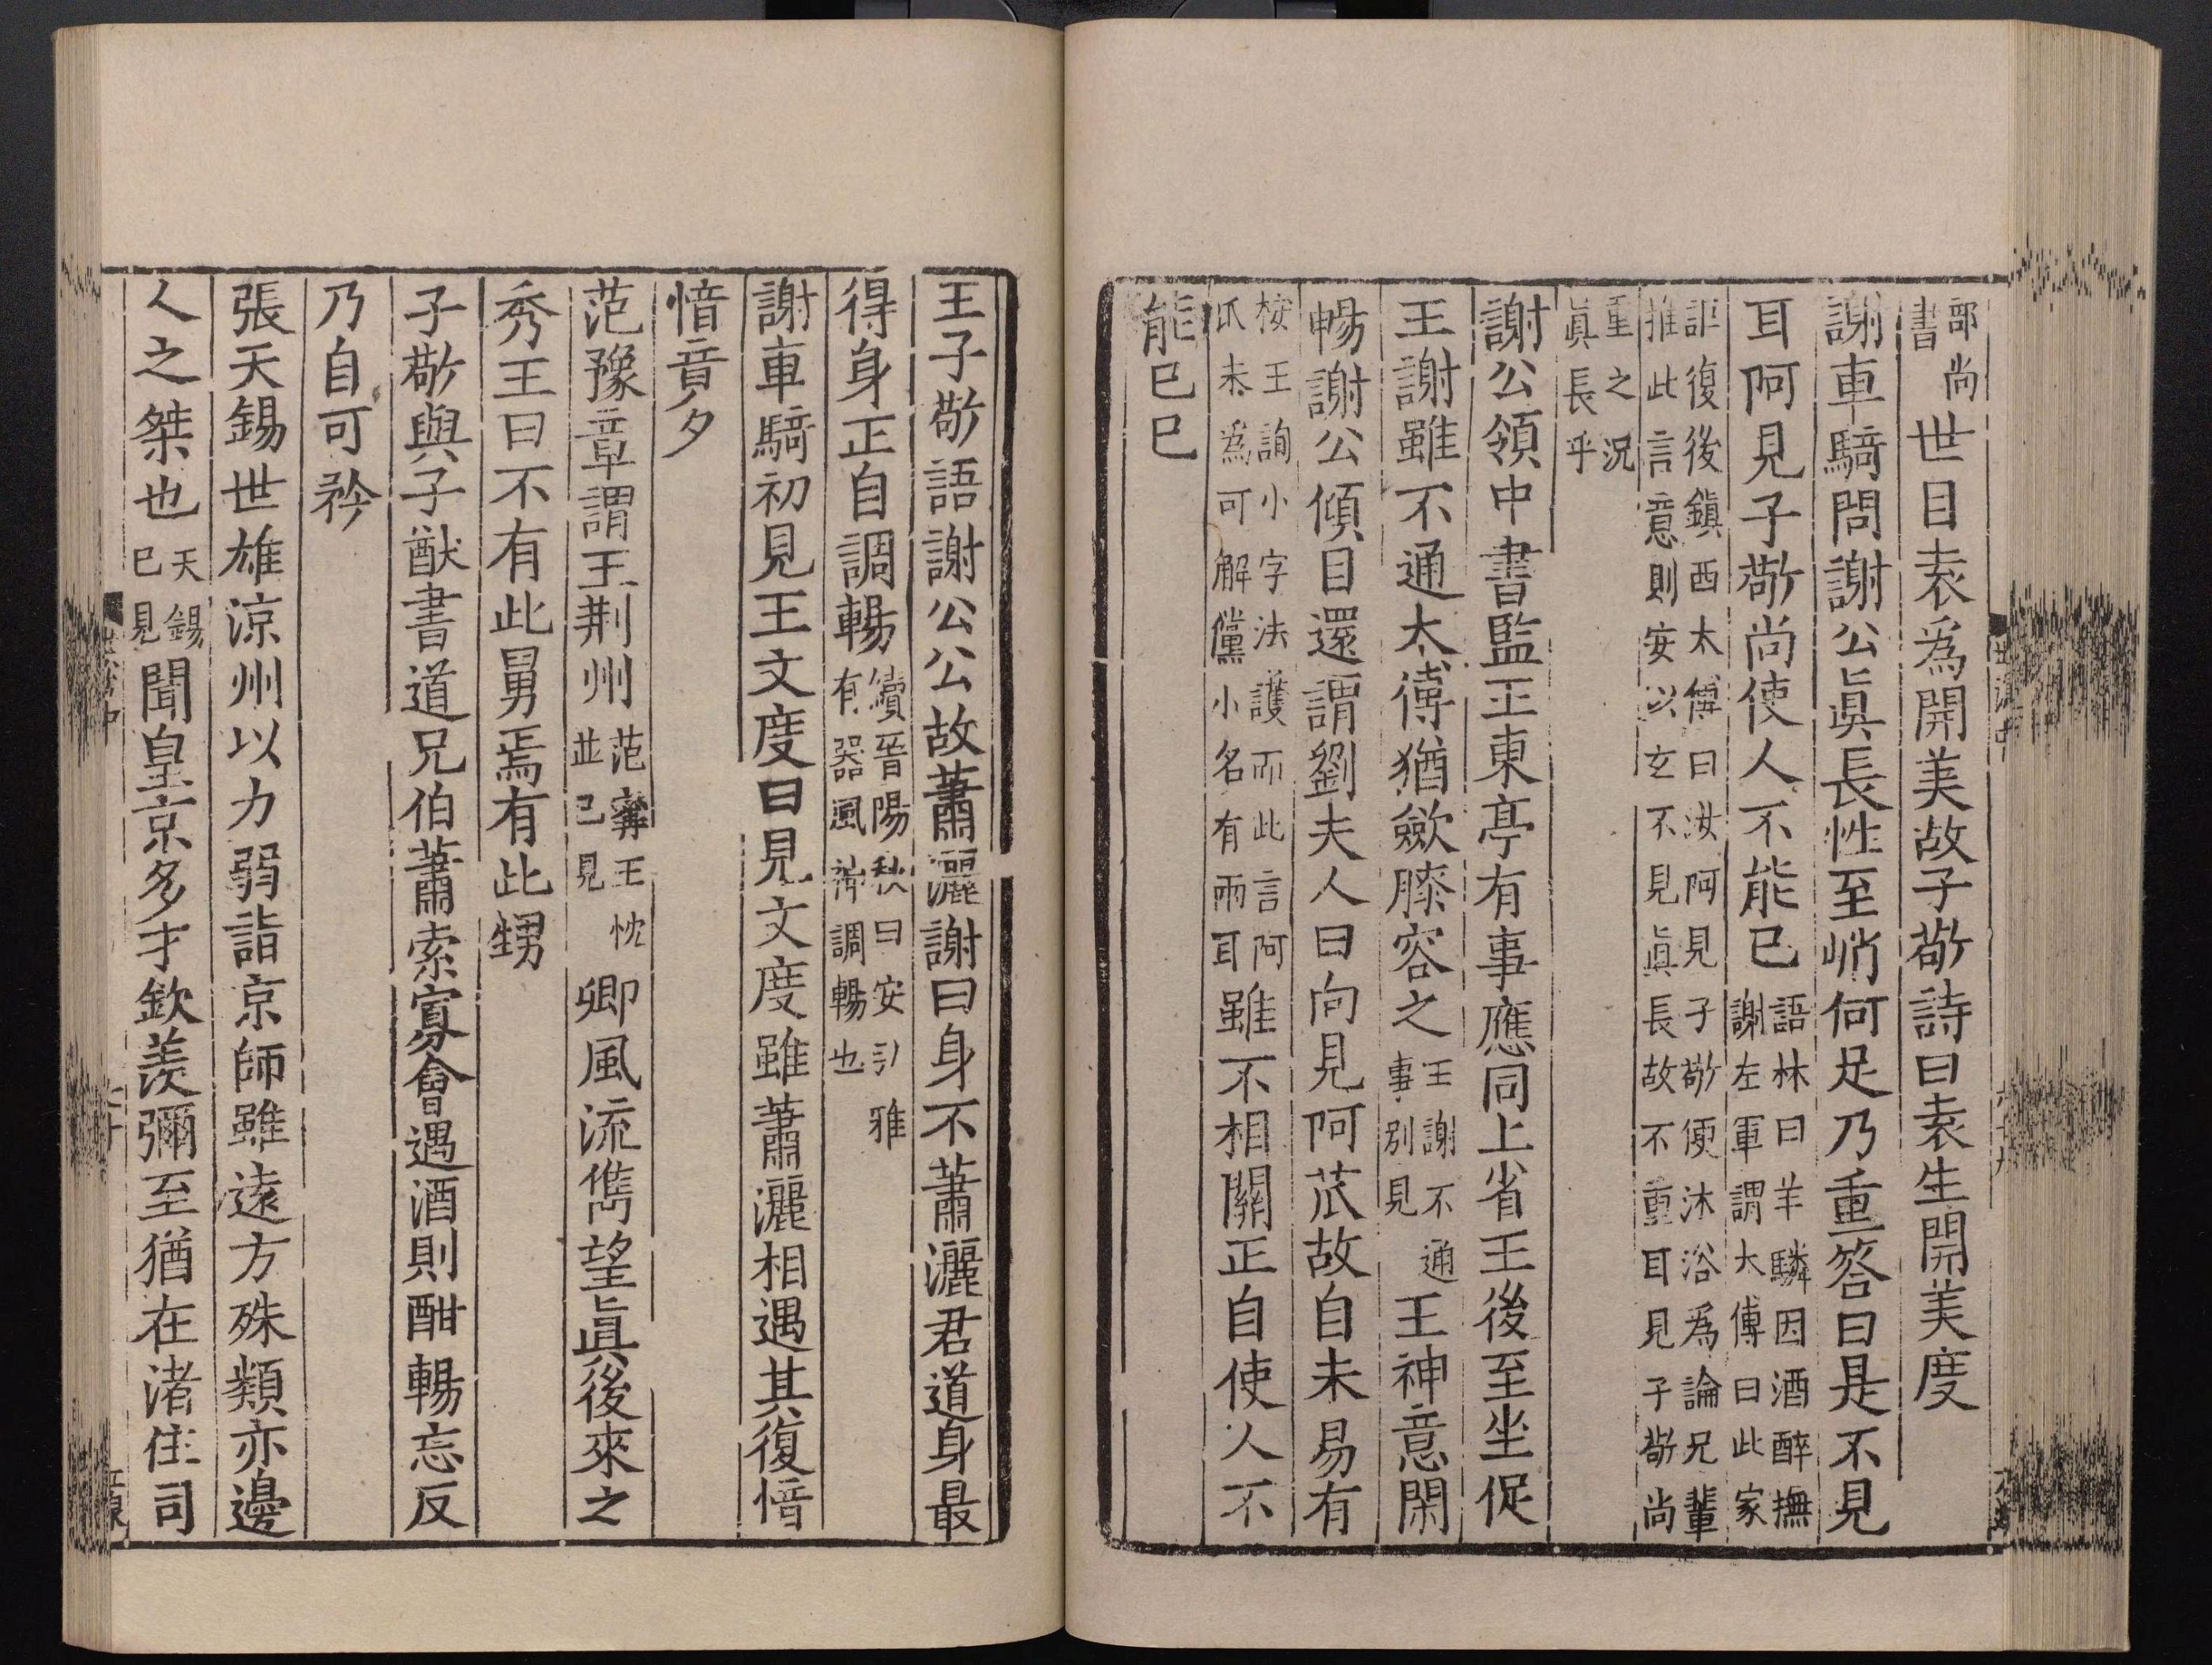 部尚
書
世目袁爲開美故子敬詩曰袁生開美度
謝車騎問謝公眞長性至峭何足乃重答曰是不見
耳阿見子敬尚使人不能已
語林曰羊驎因酒醉撫
謝左軍謂太傅曰此家
詎復後鎮西太傅曰汝阿見子敬便沐浴爲論兄輩
推此言意則安以玄不見眞長故不重耳見子敬尚
重之況
眞長乎
謝公領中書監王東亭有事應同上省王後至坐促
王謝雖不通太傅猶斂膝容之
王謝不通
事別見
王神意閑
暢謝公傾目還謂劉夫人曰向見阿苽故自未易有
桉王詢小字法護而此言阿
苽未爲可解儻小名有兩耳
雖不相關正自使人不
能已已
王子敬語謝公公故蕭灑謝曰身不蕭灑君道身最
得身正自調暢
續晉陽秋曰安弘雅
有器風神調暢也
謝車騎初見王文度曰見文度雖蕭灑相遇其復愔
愔音夕
范豫章謂王荆州
范甯王忱
並已見
卿風流儁望眞後來之
秀王曰不有此舅焉有此甥
子敬與子猷書道兄伯蕭索寡會遇酒則酣暢忘反
乃自可矜
張天錫世雄涼州以力弱詣京師雖遠方殊類亦邊
人之桀也
天錫
已見
聞皇京多才欽羨彌至猶在渚住司